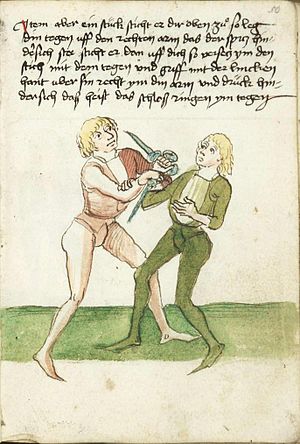 Item aber ein stuck sticht er dir oben zů so leg
din tegen uff den rechten arm das der spicz hin
dersich ste sticht er dan uff dich so versecz ym den
stich mit dem tegen und griff mit der lincken
hant uber sin recht ym din arm und druck hin
dersich das heist das schloss ringen ym tegen